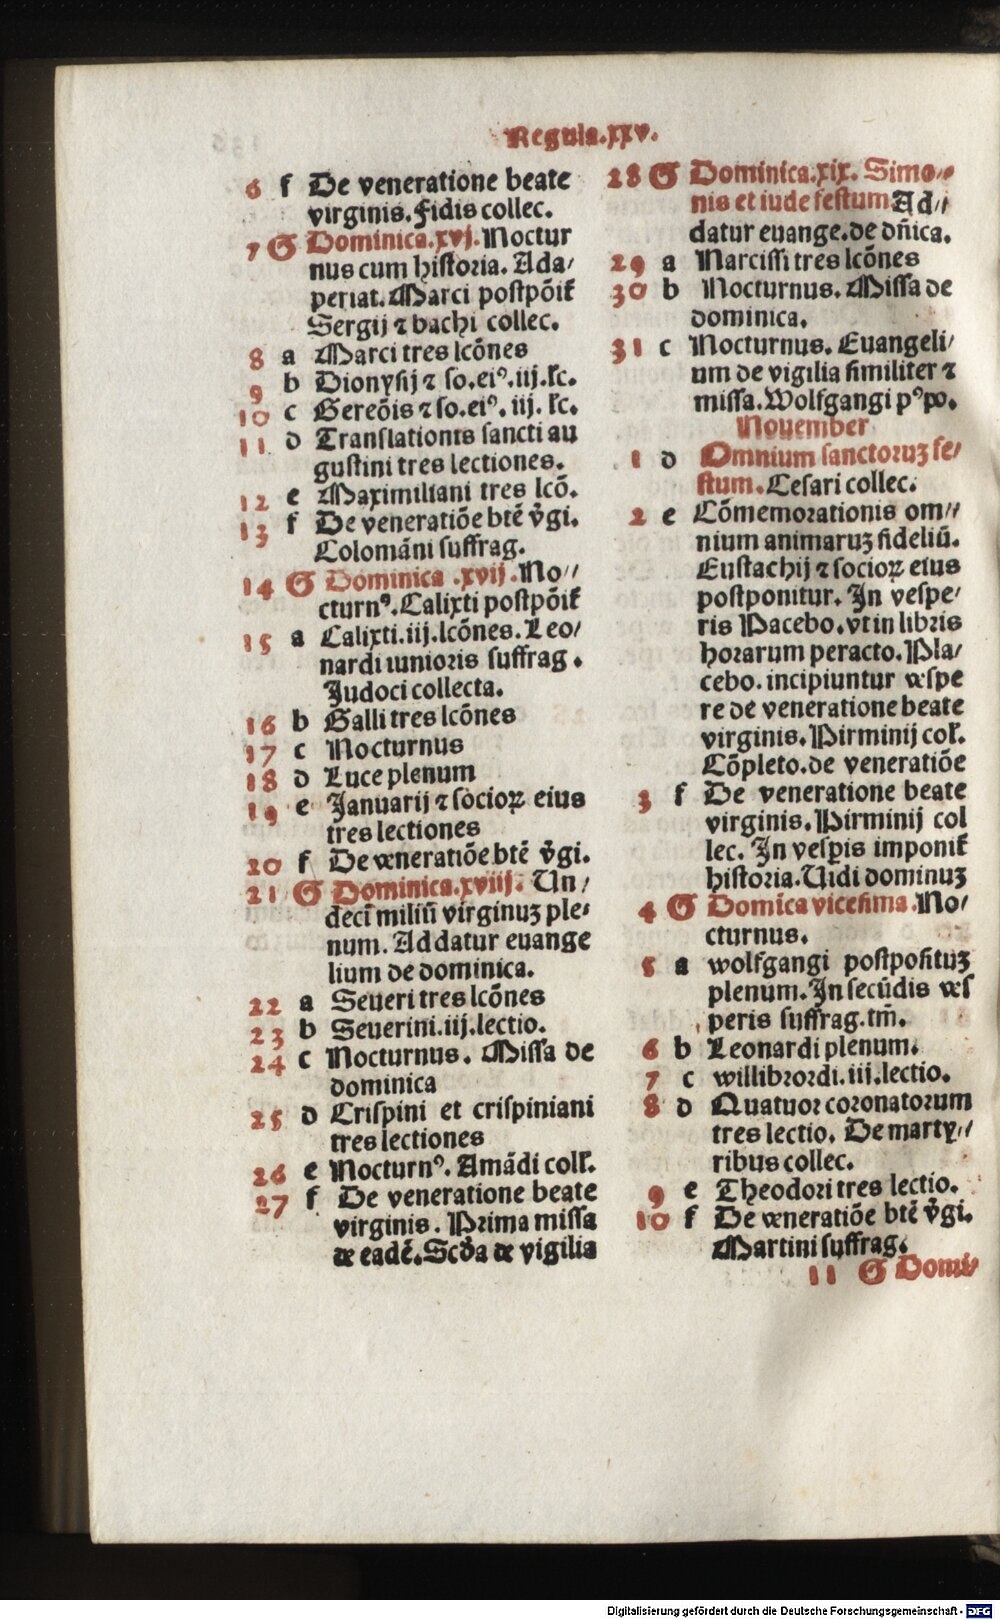 Regula.xxv.
6 f De veneratione beate
virginis. Fidis collec.
7 G Dominica.xvj. Noctur
nus cum historia. Ada⸗
periat. Marci postpõik̃
Sergij ⁊ bachi collec.
8 a Marci tres lcõnes
9 b Dionysij ⁊ so.eiꝰ.iij.lc̃.
10 c Gereõis ⁊ so.eiꝰ.iij. lc̃.
11 d Translationis sancti au
gustini tres lectiones.
12 e Maximiliani tres lcõ.
13 f De veneratiõe btẽ v̓gi.
Colomãni suffrag.
14 G Dominica .xvij. No⸗
cturnꝰ. Calixti postpõik̃
15 a Calixti.iij.lcõnes. Leo⸗
nardi iunioris suffrag.
Judoci collecta.
16 b Galli tres lcõnes
17 c Nocturnus
18 d Luce plenum
19 e Januarij ⁊ socioꝝ eius
tres lectiones
20 f De veneratiõe btẽ v̓gi.
21 G Dominica.xviij. Un⸗
deci̅ miliũ virginuꝫ ple⸗
num. Addatur euange
lium de dominica.
22 a Seueri tres lcõnes
23 b Seuerini.iij.lectio.
24 c Nocturnus. Missa de
dominica
25 d Crispini et crispiniani
tres lectiones
26 e Nocturnꝰ. Amãdi coll̃.
27 f De veneratione beate
virginis. Prima missa
de eadẽ. Scd̓a de vigilia
28 G Dominica.xix. Simo⸗
nis et iude festum Ad⸗
datur euange.de dñica.
29 a Narcissi tres lcõnes
30 b Nocturnus. Missa de
dominica.
31 c Nocturnus. Euangeli⸗
um de vigilia similiter ⁊
missa. Wolfgangi pꝰpo.
Nouember
1 d Omnium sanctoruꝫ fe⸗
stum. Cesari collec.
2 e Cõmemorationis om⸗
nium animaruꝫ fideliũ.
Eustachij ⁊ socioꝝ eius
postponitur. In vespe⸗
ris Pacebo. vt in libris
horarum peracto. Pla⸗
cebo. incipiuntur vespe
re de veneratione beate
virginis. Pirminij col̃.
Cõpleto.de veneratiõe
3 f De veneratione beate
virginis. Pirminij col
lec. In vesp̱is imponik̃
historia. Uidi dominuꝫ
4 G Domi̅ca vicesima. No⸗
cturnus.
5 a wolfgangi postposituꝫ
plenum. In secũdis ves
peris suffrag.tm̃.
6 b Leonardi plenum.
7 c willibrordi.iij.lectio.
8 d Quatuor coronatorum
tres lectio. De marty⸗
ribus collec.
9 e Theodori tres lectio.
10 f De veneratiõe btẽ v̓gi.
Martini suffrag.
11 G Domi⸗
Digitalisierung gefördert durch die Deutsche Forschungsgemeinschaft - DFG